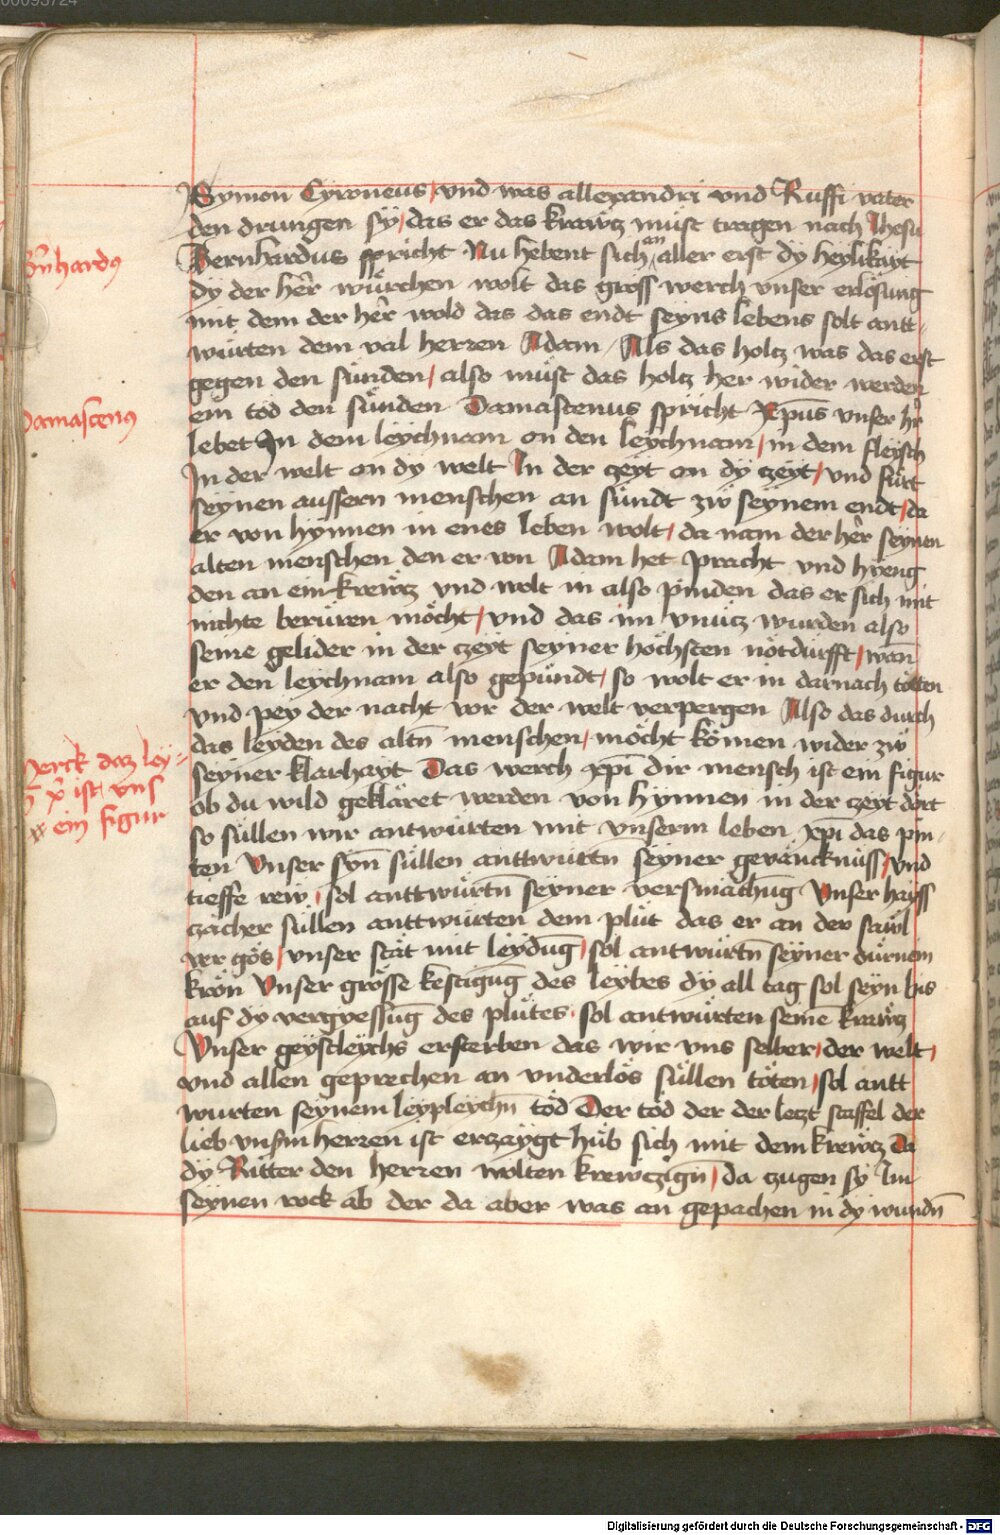 Symon Cyroneus / vnd was allexandri vnd Ruffi vater
den drungen sy / das er das krawcz müst tragen nach Jhesu
Bñhardꝰ
Bernhardus spricht Nu hebent sich an aller erst dy heylikayt
dy der her würchen wolt das gross werch vnser erlösung
mit dem der her wold das das endt seyns lebens solt antt
würten dem val herren Adam / Als das holcz was das erst
gegen den sünden / also müst das holcz her wider werden
Damascenꝰ
ein tod den sünden Damascenus spricht Xp̄us vnser hr̄
lebet In dem leychnam on den leychnam / in dem fleysch
In der welt on dy welt In der czeyt on dy czeyt / vnd fürt
seynen aussern menschen an sündt zw seynem endt / da
er von hynnen in enes leben wolt / da nam der her seynen
alten menschen den er von Adam het pracht vnd hyeng
den an ein krewcz vnd wolt in also pinden das er sich mit
nichte berüren möcht / vnd das im vnücz wurden also
seine gelider in der czeyt seyner höchsten nötdurfft / wan̄
er den leychnam also gepündt / so wolt er in darnach tötten
vnd pey der nacht vor der welt verpergen Also das durch
das leyden des altn̄ menschen / möcht kömen wider zw
Merck daz ley=
seyner klarhayt Das werch xp̄i dir mensch ist ein figur
xp̄i ist vns
ob du wild gekläret werden von hynnen in der czeyt dört
ein figur
so süllen wir antwürten mit vnserm leben xp̄i das pin
ten Vnser syn̄ süllen anttwürtn̄ seyner geväncknüss / vnd
tieffe rew / sol anttwürtn̄ seyner versmächūg Vnser hayss
czacher süllen anttwürten dem plüt das er an der sawl
ver gös / vnser stät mit leydūg / sol antwürtn̄ seyner dürnein
krön Vnser grösse kestigūg des leybes dy all tag sol seyn bis
auf dy vergyessūg des plütes / sol antwürten seinē krawcz
Vnser geystleychs ersterben das wir vns selber / der welt /
vnd allen geprechen an vnderlös süllen töten / sol antt
wurten seynem leypleychn̄ töd Der töd der der leczt staffel der
lieb vnsm̄ herren ist erczaygt hüb sich mit dem krewcz Da
dy Ritter den herren wolten krewczign̄ / da czugen sy Im
seynen rock ab der da aber was an gepachen in dy wundn̄
Digitalisierung gefördert durch die Deutsche Forschungsgemeinschaft - DFG